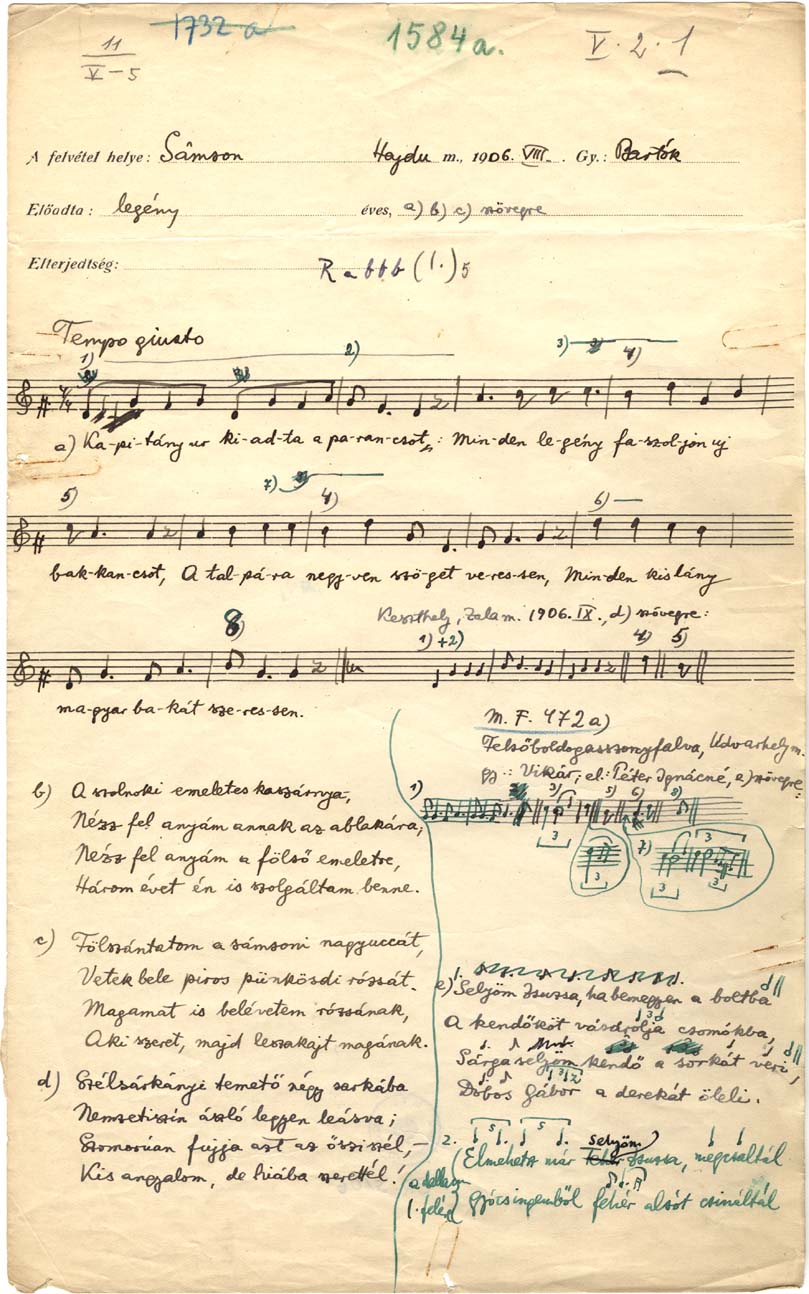 1732 a
11
V-5
1584 a.
V. 2. 1
A felvétel helye: Sámson Hajdu m., 1906. VIII. Gy.: Bartók
Előadta: legény éves, a) b) c) szövegre
Elterjedtség: R a b b b (1.) 5
Tempo giusto
1) 2) 3) 4)
a) Ka-pi-tány ur ki-ad-ta a pa-ran-csot,: Min-den le-gény fa-szol-jon uj
5) 7) 4) 6)
bak-kan-csot, A tal-pá-ra negy-ven szö-get ve-res-sen, Min-den kis lány
Keszthely, Zala m. 1906. IX., d) szövegre:
8) 1) +2) 4) 5)
ma-gyar ba-kát sze-res-sen.
M. F. 472 a)
Felsőboldogasszonyfalva, Udvarhely m.
gy.: Vikár; el.: Péter Ignácné, a) szövegre:
1) 3) 5) 6) 8)
3 7) 3
3 3 3
b) A szolnoki emeletes kaszárnya,
Nézz fel anyám annak az ablakára;
Nézz fel anyám a fölső emeletre,
Három évet én is szolgáltam benne.
c) Fölszántatom a sámsoni nagyuccát,
Vetek bele piros pünkösdi rózsát.
Magamat is belévetem rózsának,
Aki szeret, majd leszakajt magának.
d) Szélsárkányi temető négy sarkába
Nemzetiszin ászló legyen leásva;
Szomorúan fujja azt az őszi szél, –
Kis angyalom, de hiába szerettél!
1.
e) Selyöm Zsuzsa, ha bemegyen a boltba
A kendőköt vásárolja csomókba,
Sárga selyöm kendő a sorkát veri,
Dobos Gábor a derekát öleli.
2. 5 5 selyöm
Elmehetsz már fehér Zsuzsa, megcsaltál
a dallam
1. felére
Gyócsingemből fehér alsót csináltál